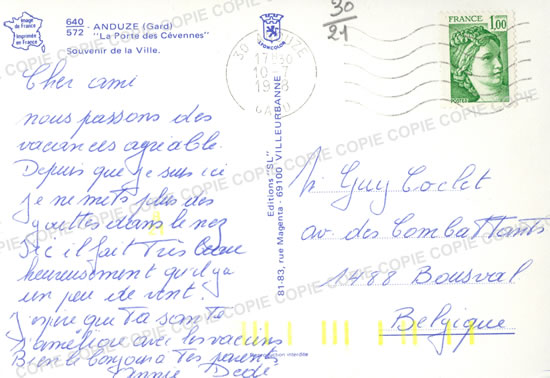 Image de France
Imprimée en France
640 - ANDUZE (Gard)
572 "La Porte des Cévennes"
Souvenir de la Ville.
Cher ami
nous passons des
vacances agréable.
Depuis que je suis ici
je ne mets plus des
gouttes dans le nez
Ici il fait Très beau
heureusement qu'il y a
un peu de vent.
J'espère que Ta santé
s'améliore avec les vaccins
Bien le bonjour a Tes parents
Annie Dédé
Editions "SL"
81-83, rue Magenta - 69100 VILLEURBANNE
Reproduction interdite
30
21
30 ANDUZE
17H30
10-7
1978
GARD
FRANCE
1,00
POSTES
Mr Guy Coclet
av. des Combattants
1488 Bousval
Belgique
COPIE COPIE COPIE COPIE COPIE